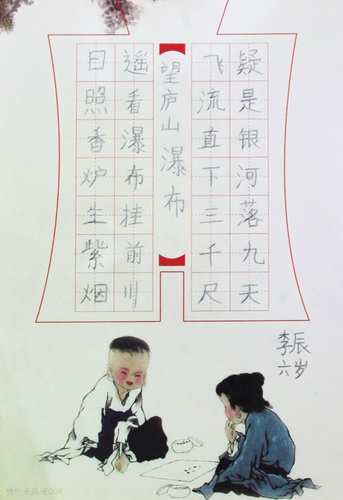 望庐山瀑布
日照香炉生紫烟
遥看瀑布挂前川
飞流直下三千尺
疑是银河落九天
李辰
六岁